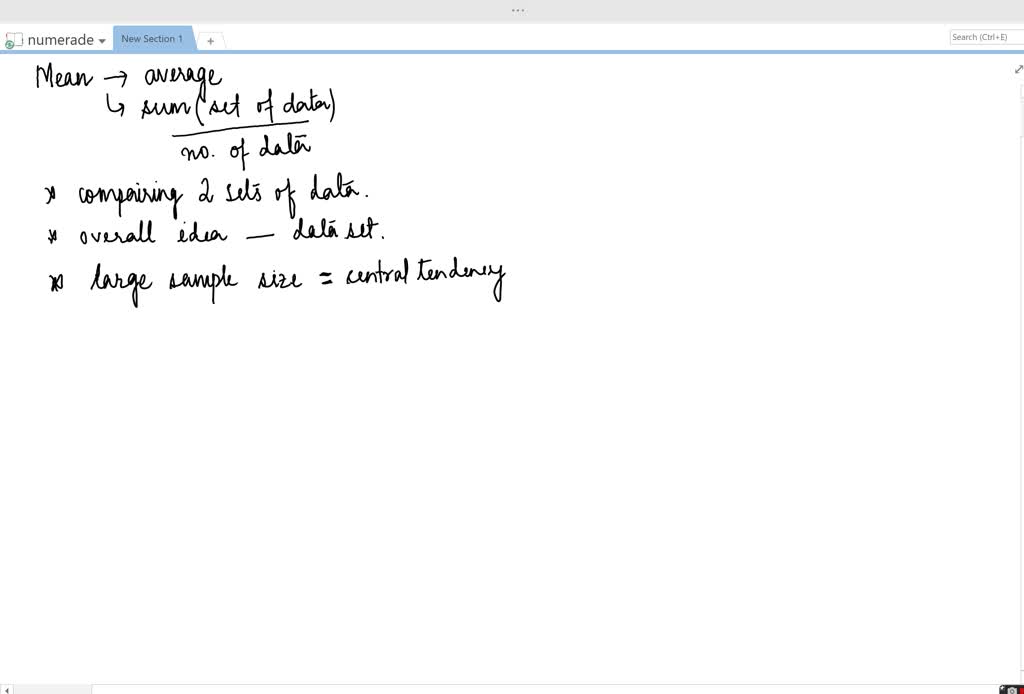 ...
numerade
New Section 1
+
Search (Ctrl+E)
Mean → average
↳ sum (set of data)
no. of data
* compairing 2 sets of data.
* overall idea — data set.
* large sample size = central tendency